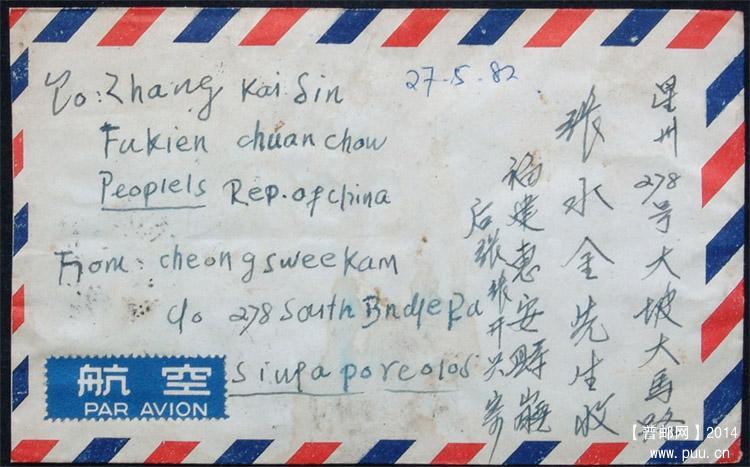 To: Zhang Kai Sin
27-5-82
Fukien chuan chow
Peoplels Rep. of China
From: cheong sweekam
c/o 278 South Bridge Rd
Singapore 0105
航空
PAR AVION
星州278号大坡大馬路
张水金先生收
福建惠安
后张张开兴寄
【普邮网】2014
www.puu.cn